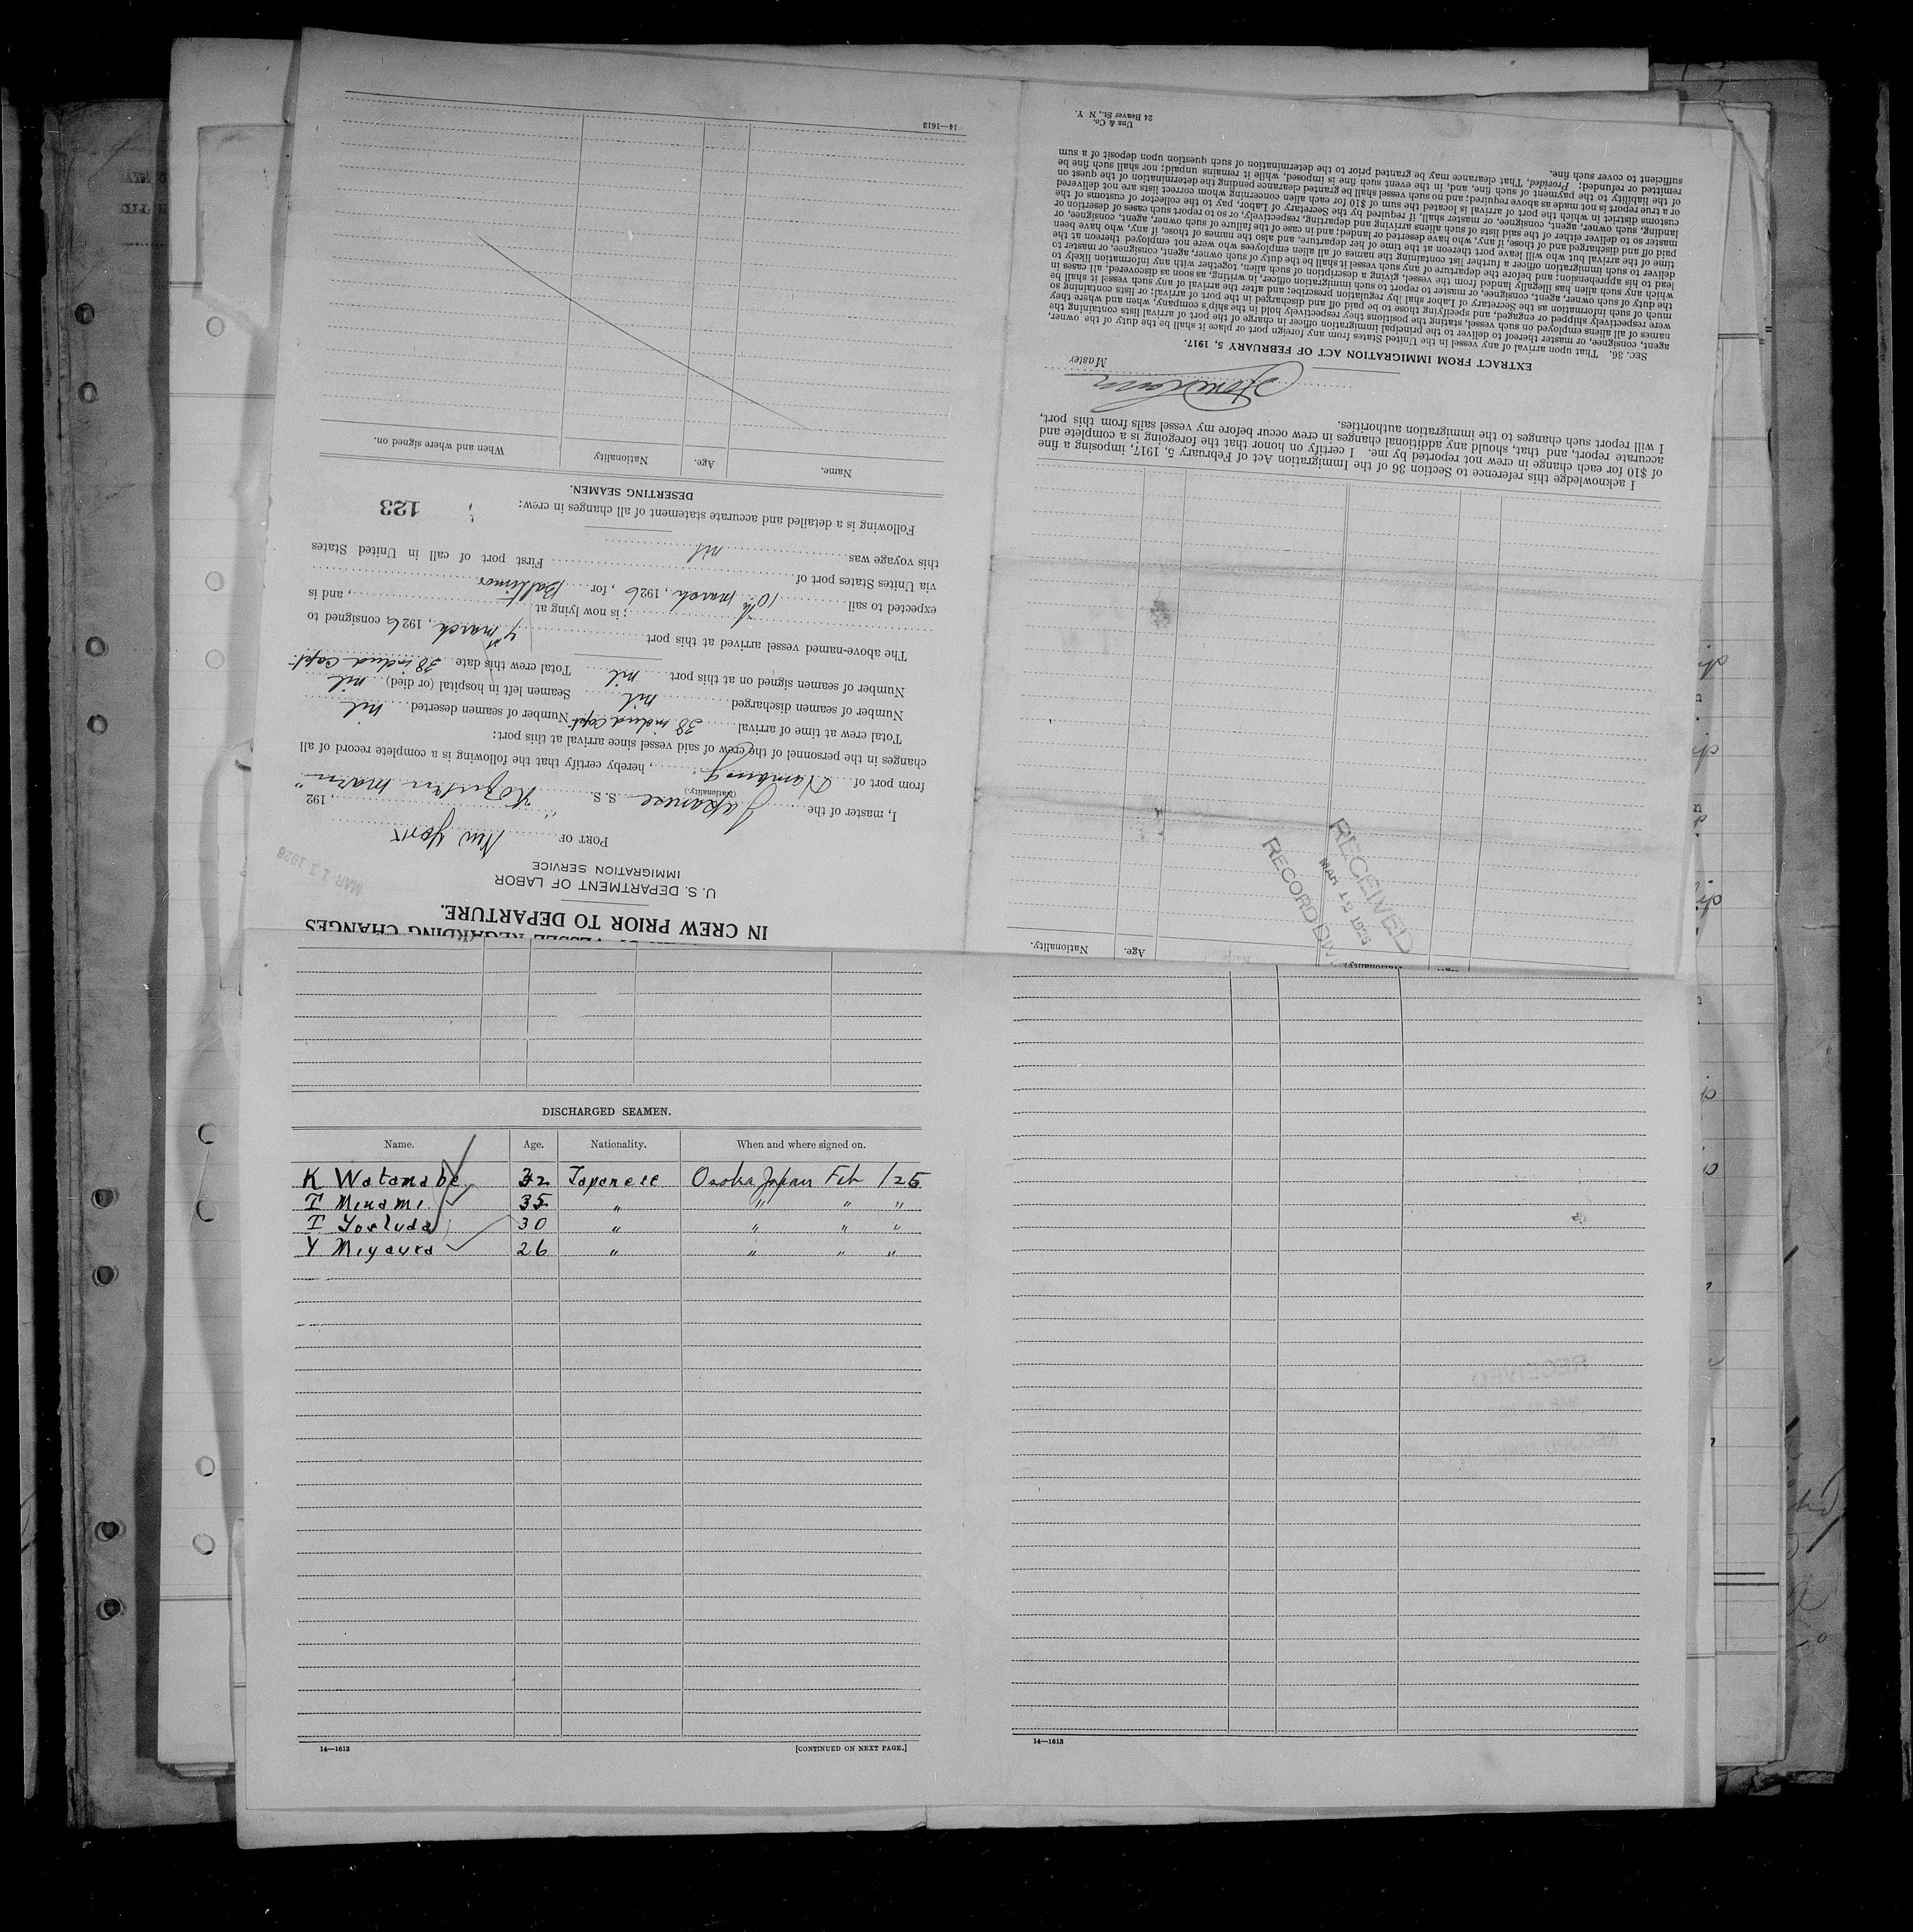 IN CREW PRIOR TO DEPARTURE.
U. S. DEPARTMENT OF LABOR
IMMIGRATION SERVICE
MAR 11 1926
PORT OF New York
, 192
I, master of the Japanese S. S. "
(Nationality.)
from port of Hamburg, hereby certify that the following is a complete record of all
changes in the personnel of the crew of said vessel since arrival at this port:
Total crew at time of arrival 38 includ Capt Number of seamen deserted nil
Number of seamen discharged nil Seamen left in hospital (or died) nil
Number of seamen signed on at this port nil Total crew this date 38 includ Capt.
The above-named vessel arrived at this port march, 1926, consigned to
; is now lying at , and is
expected to sail 10th march, 1926, for Baltimor
via Unites States port of First port of call in United States
this voyage was nil
Following is a detailed and accurate statement of all changes in crew:
123
DESERTING SEAMEN.
Name. Age. Nationality When and where signed on.
14—1613
Nationality. Age.
RECEIVED
MAR 12 1926
RECORD DIV
I acknowledge this reference to Section 36 of the Immigration Act of February 5, 1917, imposing a fine
of $10 for each change in crew not reported by me. I certify on honor that the foregoing is a complete and
accurate report, and that, should any additional changes in crew occur before my vessel sails from this port,
I will report such changes to the immigration authorities.
Master
EXTRACT FROM IMMIGRATION ACT OF FEBRUARY 5, 1917.
SEC. 36. That upon arrival of any vessel in the United States from any foreign port or place it shall be the duty of the owner,
agent, consignee, or master thereof to deliver to the principal immigration officer in charge of the port of arrival lists containing the
names of all aliens employed on such vessel, stating the positions they respectively hold in the ship's company, when and where they
were respectively shipped or engaged, and specifying those to be paid off and discharged in the port of arrival; or lists containing so
much of such information as the Secretary of Labor shall by regulation prescribe; and after the arrival of any such vessel it shall be
the duty of such owner, agent, consignee, or master to report to such immigration officer, in writing, as soon as discovered, all cases in
which any such alien has illegally landed from the vessel, giving a description of such alien, together with any information likely to
lead to his apprehension; and before the departure of any such vessel it shall be the duty of such owner, agent, consignee, or master to
deliver to such immigration officer a further list containing the names of all alien employees who were not employed thereon at the
time of the arrival but who will leave port thereon at the time of her departure, and also the names of those, if any, who have been
paid off and discharged and of those, if any, who have deserted or landed; and in case of the failure of such owner, agent, consignee, or
master so to deliver either of the said lists of such aliens arriving and departing, respectively, or so to report such cases of desertion or
landing, such owner, agent, consignee, or master shall, if required by the Secretary of Labor, pay to the collector of customs of the
customs district in which the port of arrival is located the sum of $10 for each alien concerning whom correct lists are not delivered
or a true report is not made as above required; and no such vessel shall be granted clearance pending the determination of the quest on
of the liability to the payment of such fine, and, in the event such fine is imposed, while it remains unpaid; nor shall such fine be
remitted or refunded: Provided, That clearance may be granted prior to the determination of such question upon deposit of a sum
sufficient to cover such fine.
Unz & Co.
24 Beaver St., N. Y.
DISCHARGED SEAMEN.
Name. Age. Nationality. When and where signed on.
K Watanabe 32 Japanese Osaka Japan Feb 1 25
T Minami 35 " " " "
T Yoshida 30 " " " "
Y Miyaura 26 " " " "
14—1613
[CONTINUED ON NEXT PAGE.]
14—1613